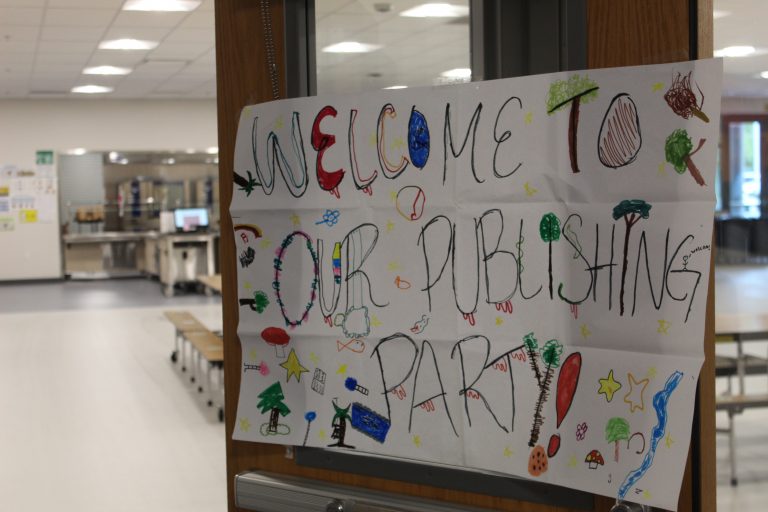 WELCOME TO
OUR PUBLISHING
PARTY!